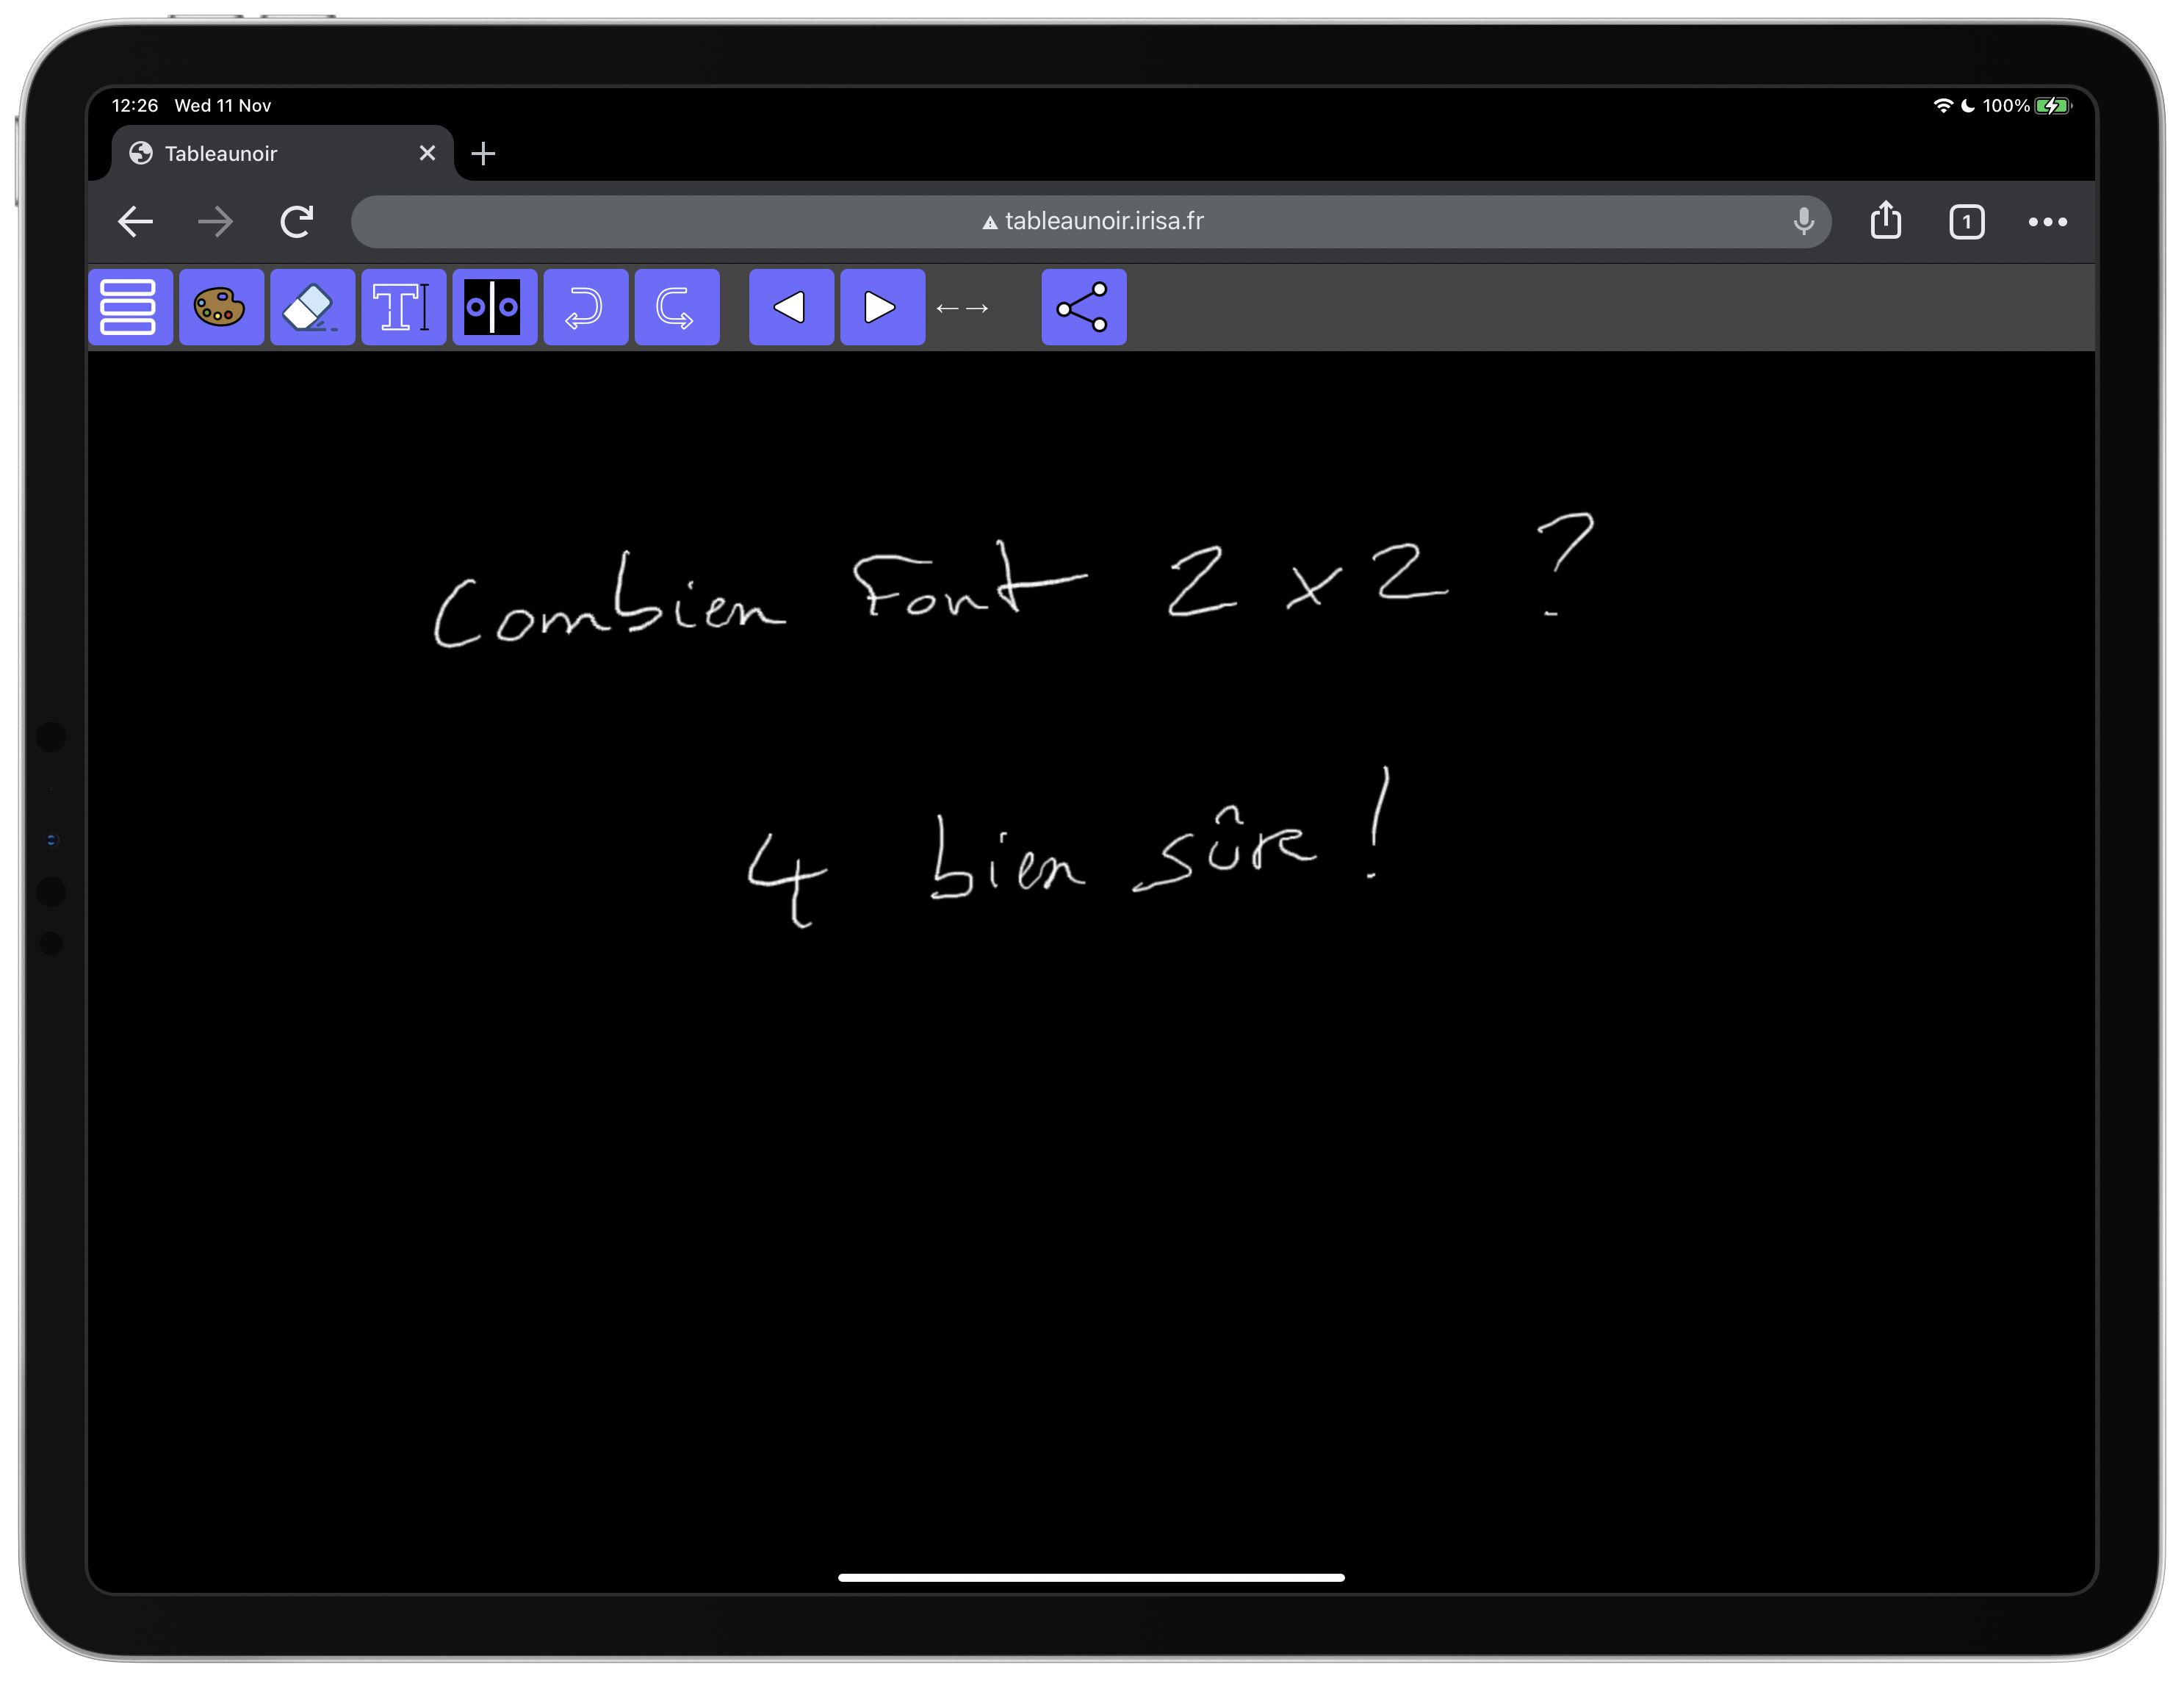 12:26 Wed 11 Nov 100%
Tableaunoir
tableaunoir.irisa.fr 1
T
Combien Font 2 x 2 ?
4 bien sûre !